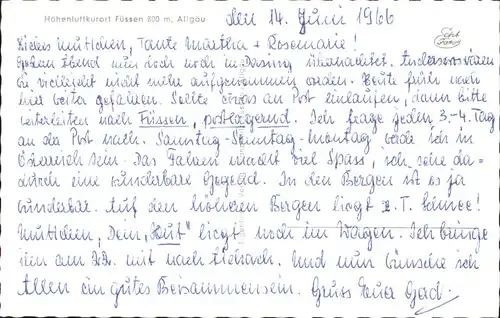 Höhenluftkurort Füssen 800 m, Allgäu
den 14. Juni 1966
Liebes Muttchen, Tante Martha + Rosemarie!
Gestern Abend nun doch noch in Dasing übernachtet. Anderswo wären
wir vielleicht nicht mehr aufgenommen worden. Heute früh nach
hier weiter gefahren. Sollte etwas an Post einlaufen, dann bitte
weiterleiten nach Füssen, postlagernd. Ich frage jeden 3.-4. Tag
an der Post nach. Samstag-Sonntag-Montag werde ich in
Österreich sein. Das Fahren macht viel Spass, ich sehe da-
durch eine wunderbare Gegend. In den Bergen ist es ja
wunderbar. Auf den höheren Bergen liegt z.T. Schnee!
Muttchen, Dein "Hut" liegt noch im Wagen. Ich bringe
ihn am mit nach Und nun wünsche ich
Allen ein gutes Beisammensein. Gruss Euer Gad.